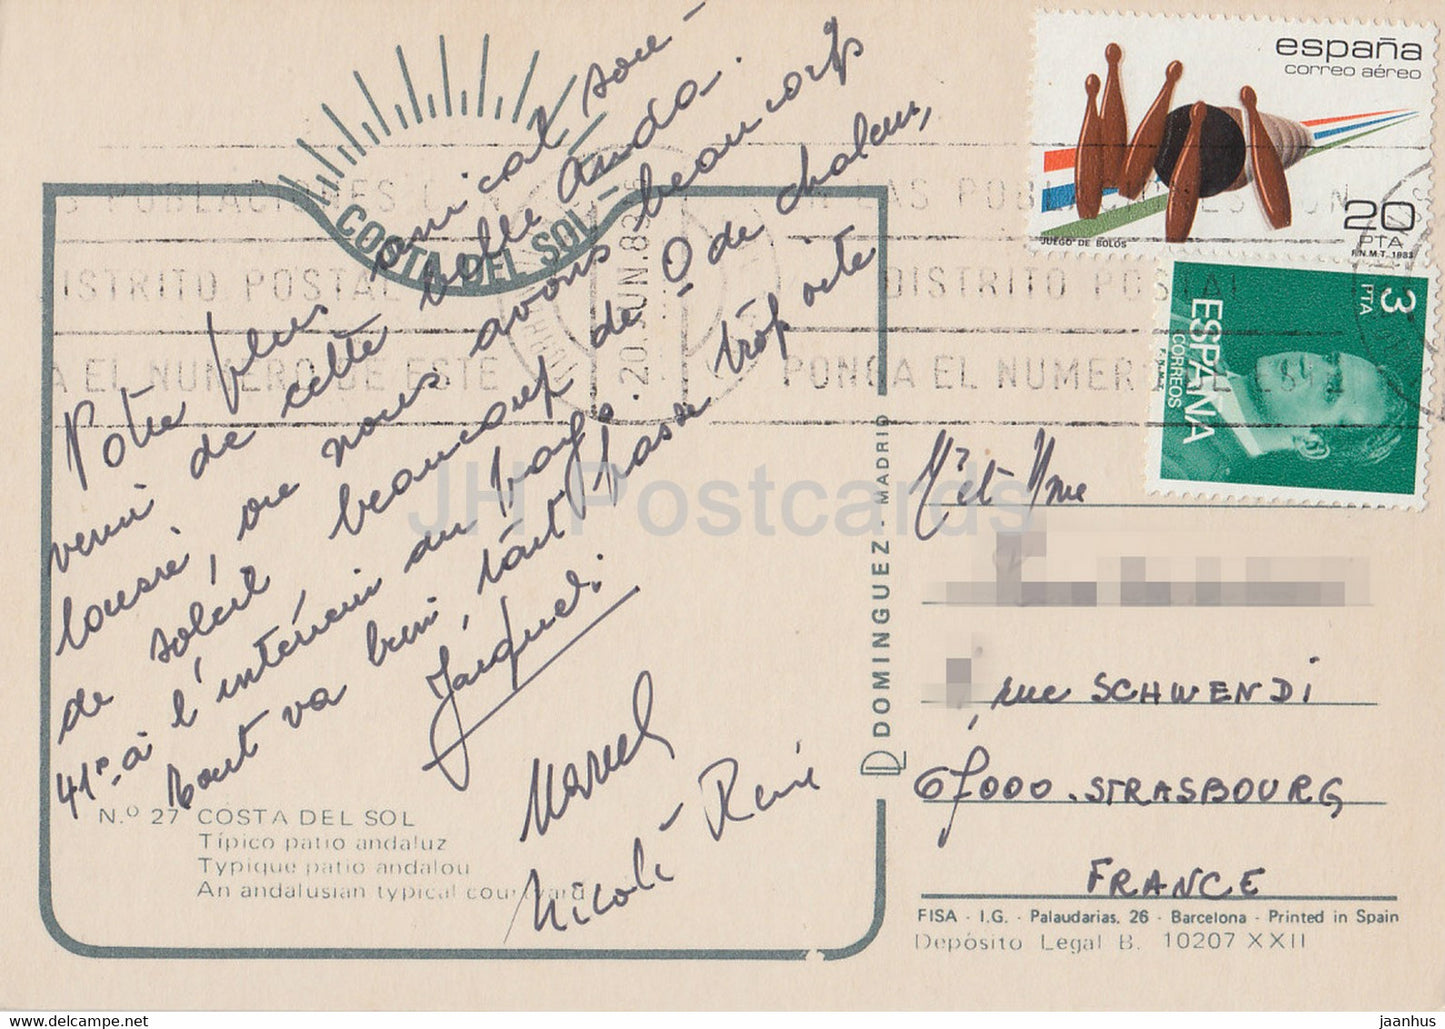 COSTA DEL SOL
Notre plus amical sou-
venir de cette belle Anda-
lousie, ou nous avons beaucoup
de soleil beaucoup de de chaleur,
41° à l'intérieur du
tout va bien, tout passe trop vite
Marcel
Nicole René
N.º 27 COSTA DEL SOL
Típico patio andaluz
Typique patio andalou
An andalusian typical courtyard
DOMINGUEZ - MADRID
españa
correo aéreo
20
PTA
JUEGO DE BOLOS
F.N.M.T. 1983
3
PTA
ESPAÑA
CORREOS
20.JUN.83
LAS POBLACIONES CON
DISTRITO POSTAL
PONGA EL NUMERO DE ESTE
DISTRITO POSTAL
PONGA EL NUMERO DE ESTE
Mme
rue SCHWENDI
67000. STRASBOURG
FRANCE
FISA - I.G. - Palaudarias, 26 - Barcelona - Printed in Spain
Depósito Legal B. 10207 XXII
JH Postcards
www.delcampe.net
jaanhus